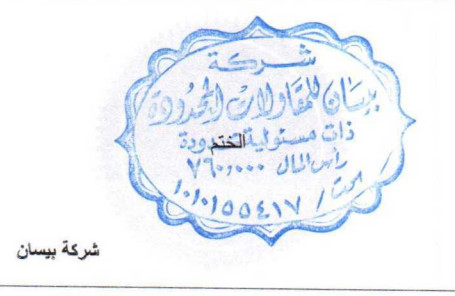 شركة
بيسان للمقاولات المحدودة
ذات مسئولية محدودة
الختم
رأس المال ٧٦٠,٠٠٠
١٠١٠١٥٥٤١٧ /
شركة بيسان